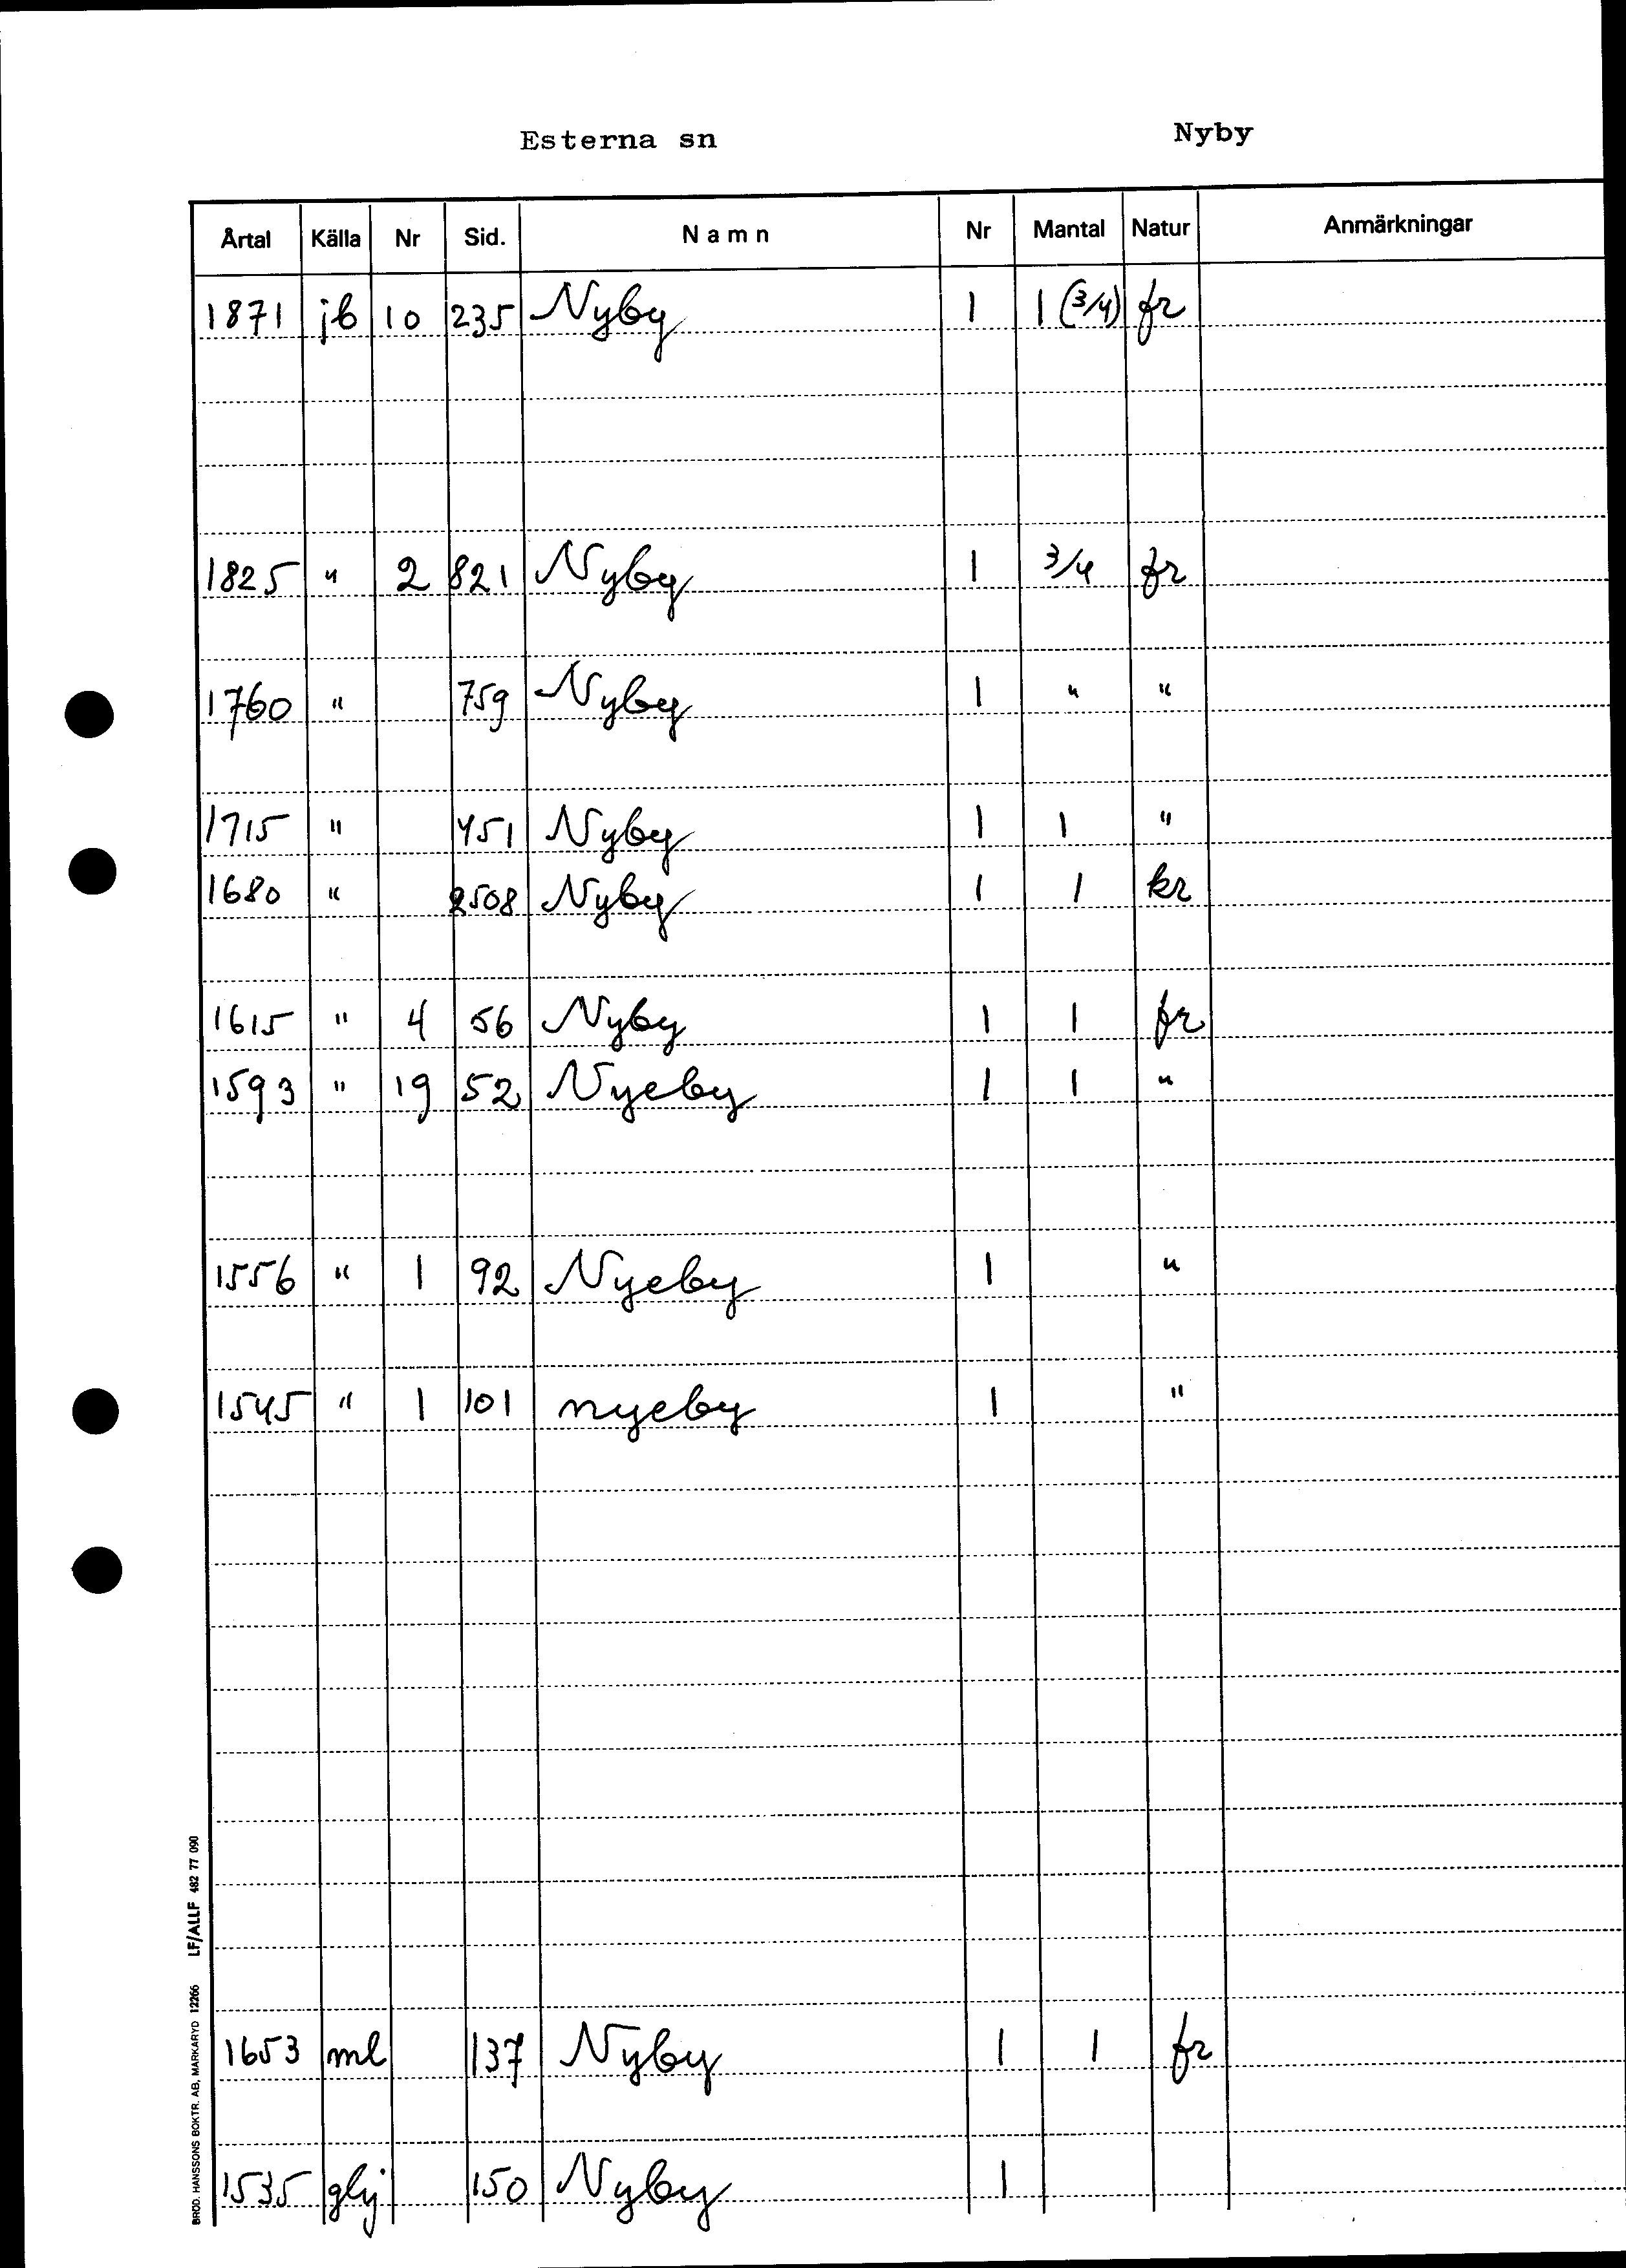 Esterna sn Nyby
Årtal Källa Nr Sid. Namn Nr Mantal Natur Anmärkningar
1871 jb 10 235 Nyby 1 1 (3/4) fr
1825 " 2 821 Nyby 1 3/4 fr
1760 " 759 Nyby 1 " "
1715 " 451 Nyby 1 1 "
1680 " 2508 Nyby 1 1 kr
1615 " 4 56 Nyby 1 1 fr
1593 " 19 52 Nyeby 1 1 "
1556 " 1 92 Nyeby 1 "
1545 " 1 101 nyeby 1 "
1653 ml 137 Nyby 1 1 fr
1535 glj 150 Nyby 1
BRÖD. HANSSONS BOKTR. AB, MARKARYD 12266 LF/ALLF 482 77 090